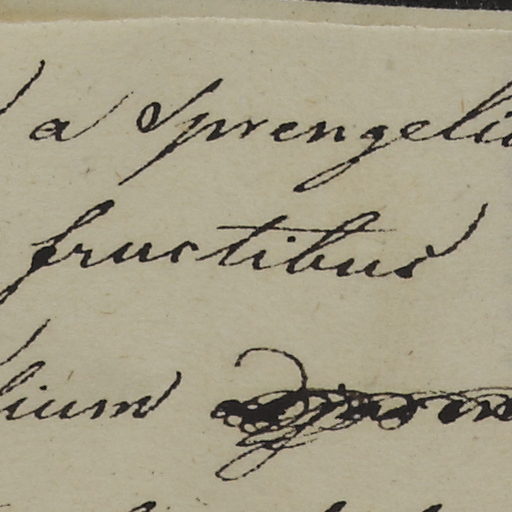 a Sprengeli
fructibus
lium